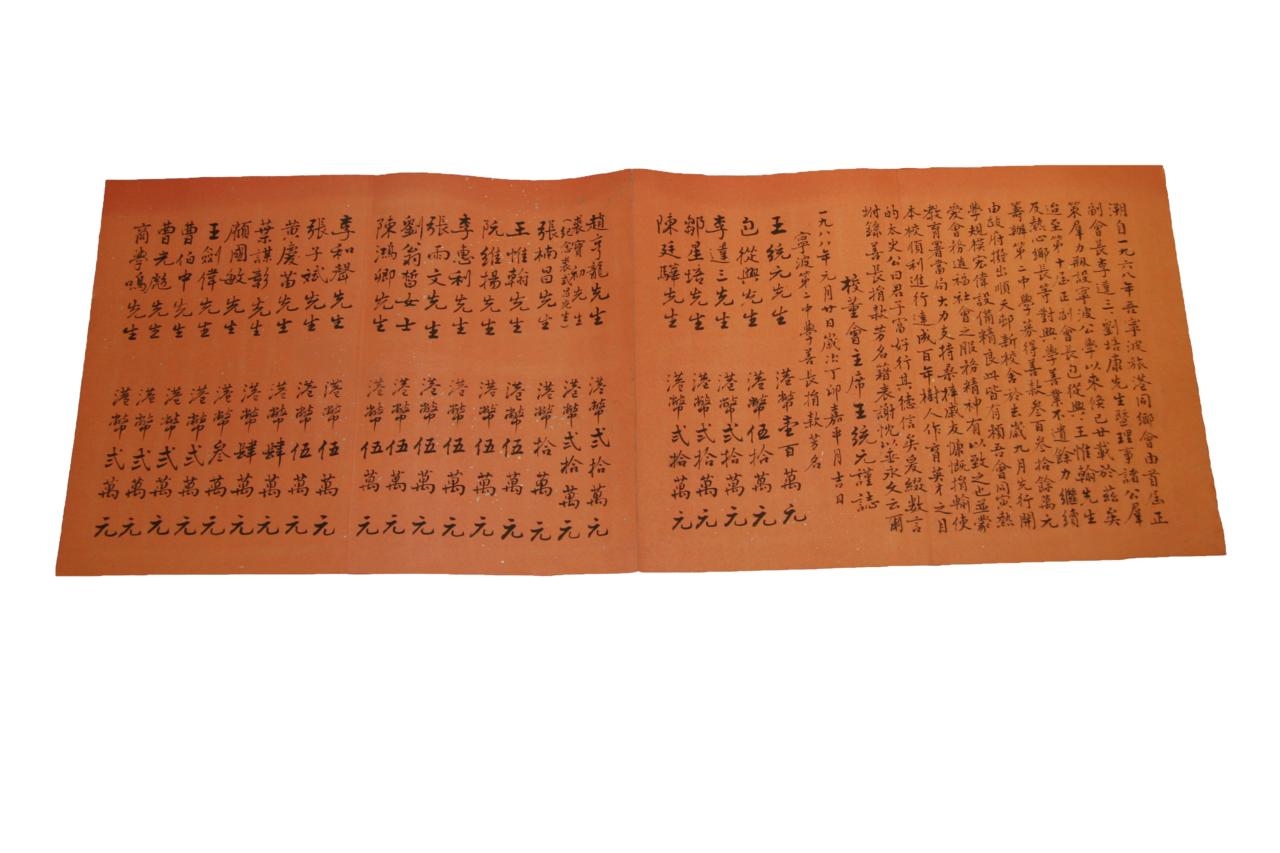 溯自一九六八年吾寧波旅港同鄉會由首屆正
副會長李達三劉培康先生暨理事諸公羣
策羣力剏設寧波公學以來倏已廿載於茲矣
迨至第十屆正副會長包從興王惟翰先生
及熱心鄉長等對興學善業不遺餘力繼續
籌辦第二中學募得善款叁百叁拾餘萬元
由政府撥出順天邨新校舍於去歲九月先行開
學規模宏偉設備精良此皆有賴吾會同寅熱
愛會務造福社會之服務精神有以致之也並蒙
教育署當局大力支持桑梓戚友慷慨捐輸使
本校順利進行達成百年樹人作育英才之目
的太史公曰君子富好行其德信矣爰綴數言
坿錄善長捐款芳名籍表謝忱以並永久云爾
校董會主席王統元謹誌
一九八八年元月廿日歲次丁卯嘉平月吉日
寧波第二中學善長捐款芳名
王統元先生 港幣壹百萬元
包從興先生 港幣伍拾萬元
李達三先生 港幣弍拾萬元
鄒星培先生 港幣弍拾萬元
陳廷驊先生 港幣弍拾萬元
趙亨龍先生 港幣弍拾萬元
裘寶初先生 港幣弍拾萬元
(紀念裘武昌先生)
張楠昌先生 港幣拾萬元
王惟翰先生 港幣伍萬元
阮維揚先生 港幣伍萬元
李惠利先生 港幣伍萬元
張雨文先生 港幣伍萬元
劉翁皙女士 港幣伍萬元
陳鴻卿先生 港幣伍萬元
李和聲先生 港幣伍萬元
張子斌先生 港幣伍萬元
黃慶苗先生 港幣肆萬元
葉謀彰先生 港幣肆萬元
顧國敏先生 港幣叁萬元
王劍偉先生 港幣弍萬元
曹伯中先生 港幣弍萬元
曹光彪先生 港幣弍萬元
商學鳴先生 港幣弍萬元